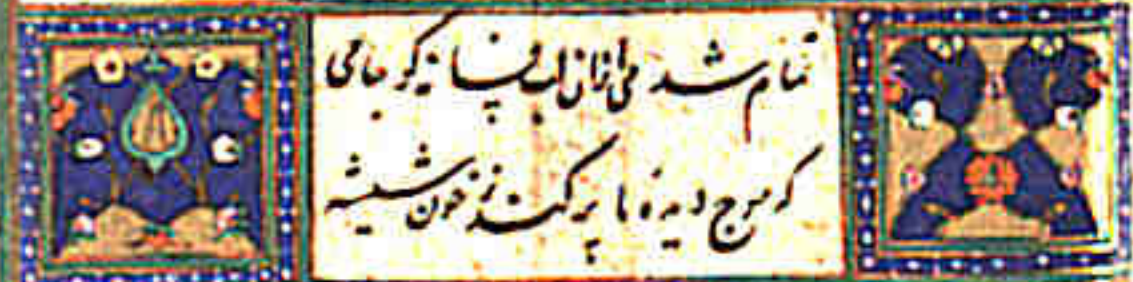 تمام شد می ازان لب و فسانه گو جامی
که موج دیده ما پر کند ز خون شیشه